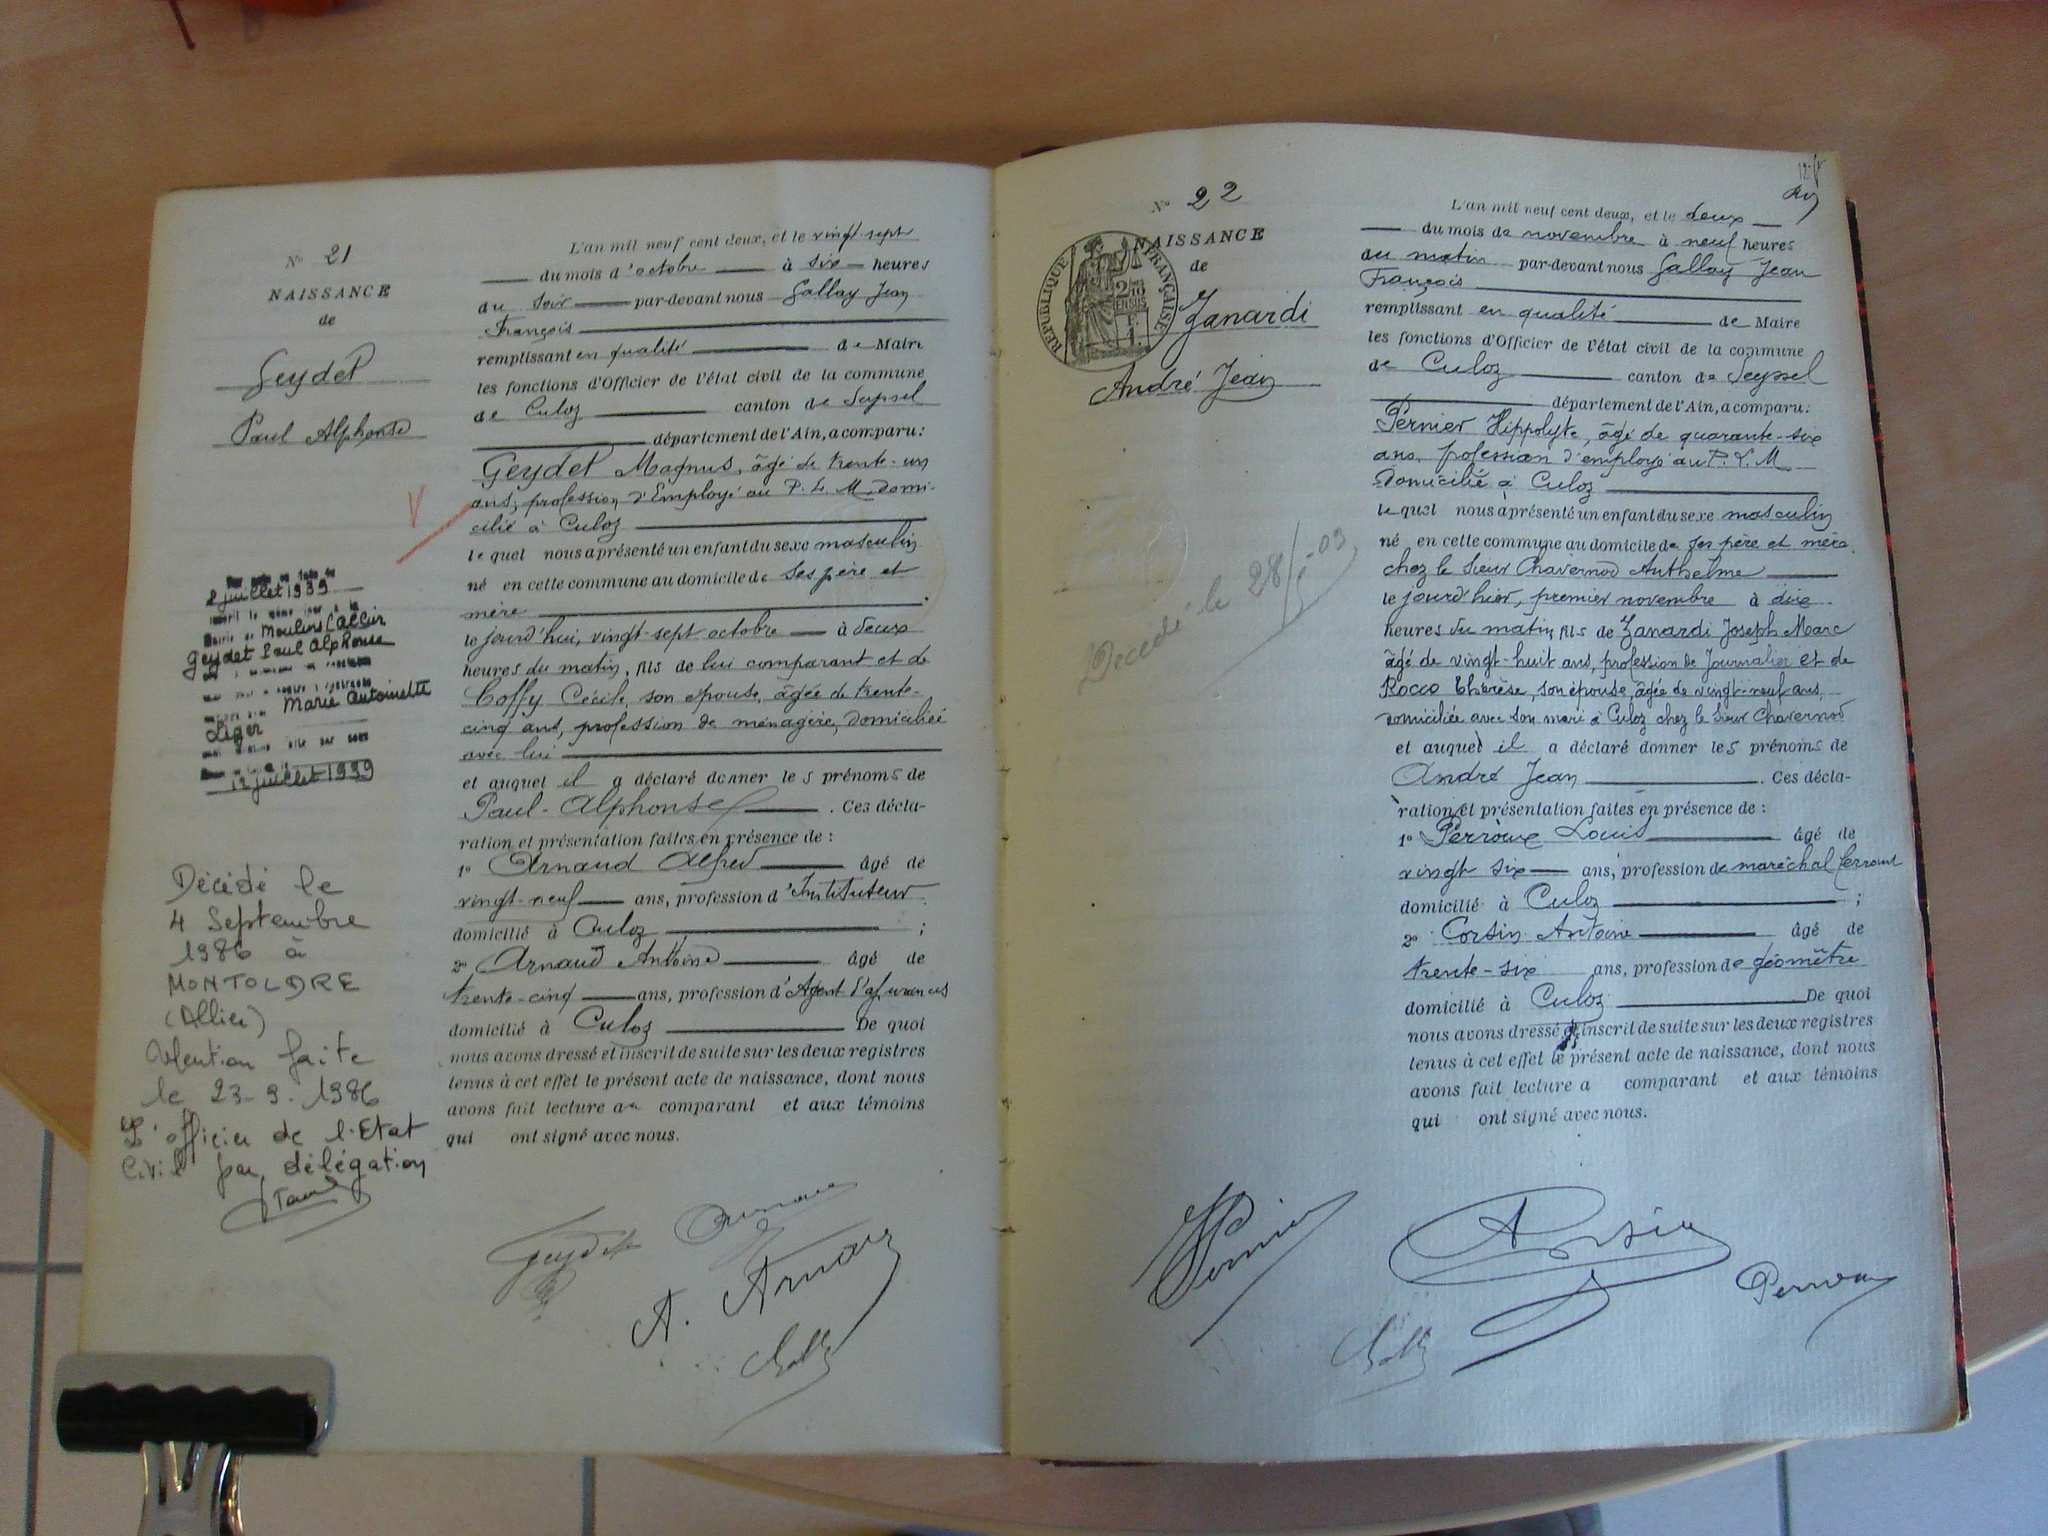 N° 21
NAISSANCE
de
Geydet
Paul Alphonse
2 juillet 1939
Moulins (Allier
Geydet Paul Alphonse
Marie Antoinette
Liger
12 juillet 1939
Décédé le
4 Septembre
1986 à
MONTOLDRE
(Allier)
Mention faite
le 23-9-1986
L'officier de l'Etat
Civil par délégation
L'an mil neuf cent deux, et le vingt sept
du mois d'octobre à six heures
du soir par-devant nous Gallay Jean
François
remplissant en qualité de Maire
les fonctions d'Officier de l'état civil de la commune
de Culoz canton de Seyssel
département de l'Ain, a comparu:
Geydet Magnus, âgé de trente-un
ans, profession d'Employé au P. L. M. domi-
cilié à Culoz
lequel nous a présenté un enfant du sexe masculin
né en cette commune au domicile de ses père et
mère
le jourd'hui, vingt-sept octobre à deux
heures du matin, fils de lui comparant et de
Coffy Cécile, son épouse, âgée de trente-
cinq ans, profession de ménagère, domiciliée
avec lui
et auquel il a déclaré donner les prénoms de
Paul-Alphonse. Ces décla-
ration et présentation faites en présence de :
1° Arnaud Alfred âgé de
vingt-neuf ans, profession d'Instituteur
domicilié à Culoz ;
2° Arnaud Antoine âgé de
trente-cinq ans, profession d'Agent d'assurances
domicilié à Culoz De quoi
nous avons dressé et inscrit de suite sur les deux registres
tenus à cet effet le présent acte de naissance, dont nous
avons fait lecture au comparant et aux témoins
qui ont signé avec nous.
Geydet
A. Arnaud
N° 22
NAISSANCE
de
RÉPUBLIQUE FRANÇAISE
2/10 EN SUS
Zanardi
André Jean
Décédé le 28/5-03
L'an mil neuf cent deux, et le deux
du mois de novembre à neuf heures
du matin par-devant nous Gallay Jean
François
remplissant en qualité de Maire
les fonctions d'Officier de l'état civil de la commune
de Culoz canton de Seyssel
département de l'Ain, a comparu:
Pernier Hippolyte, âgé de quarante-six
ans, profession d'employé au P. L. M
domicilié à Culoz
lequel nous a présenté un enfant du sexe masculin
né en cette commune au domicile de ses père et mère
chez le sieur Chavernod Anthelme
le jourd'hier, premier novembre à dix
heures du matin, fils de Zanardi Joseph Marc
âgé de vingt-huit ans, profession de Journalier et de
Rocco Thérèse, son épouse, âgée de vingt-neuf ans
domiciliée avec son mari à Culoz chez le sieur Chavernod
et auquel il a déclaré donner les prénoms de
André Jean. Ces décla-
ration et présentation faites en présence de :
1° Perroux Louis âgé de
vingt six ans, profession de maréchal ferrant
domicilié à Culoz ;
2° Corsin Antoine âgé de
trente-six ans, profession de géomètre
domicilié à Culoz De quoi
nous avons dressé et inscrit de suite sur les deux registres
tenus à cet effet le présent acte de naissance, dont nous
avons fait lecture a comparant et aux témoins
qui ont signé avec nous.
Pernier
A Corsin
Perroux